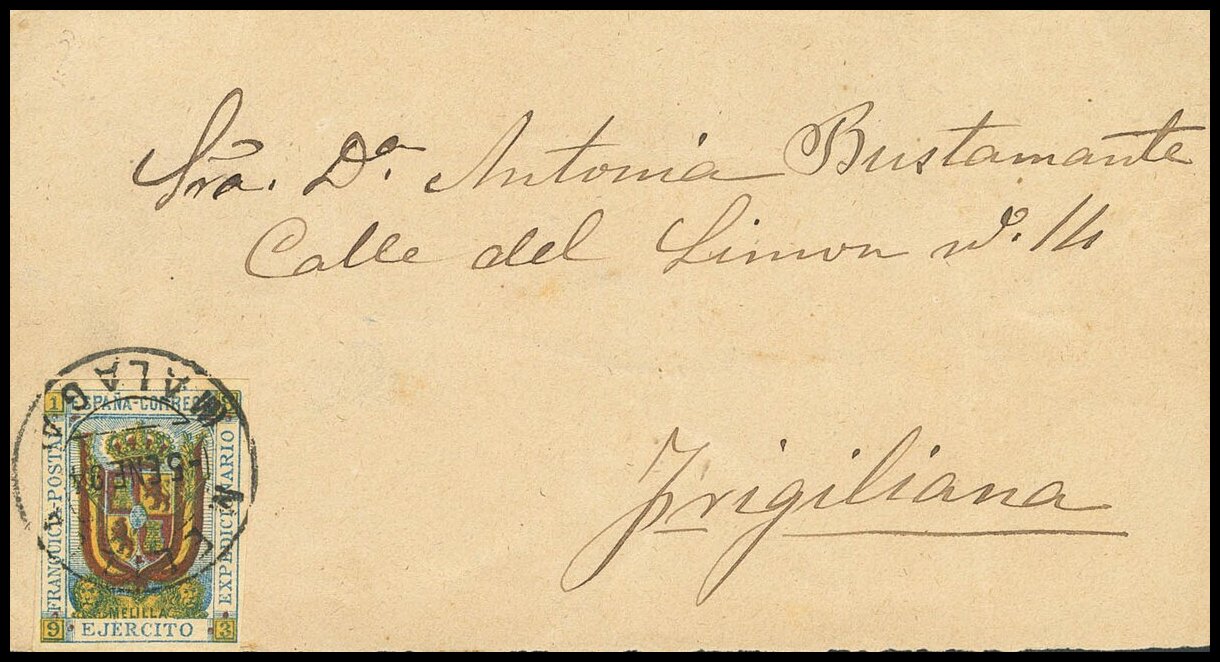 Sra. Dª. Antonia Bustamante
Calle del Limon nº. 14
Frigiliana
1 8
ESPAÑA-CORREOS
FRANQUICIA-POSTAL
EXPEDICIONARIO
MELILLA
9 EJERCITO 3
MELILLA
MALAG
15 ENE 94